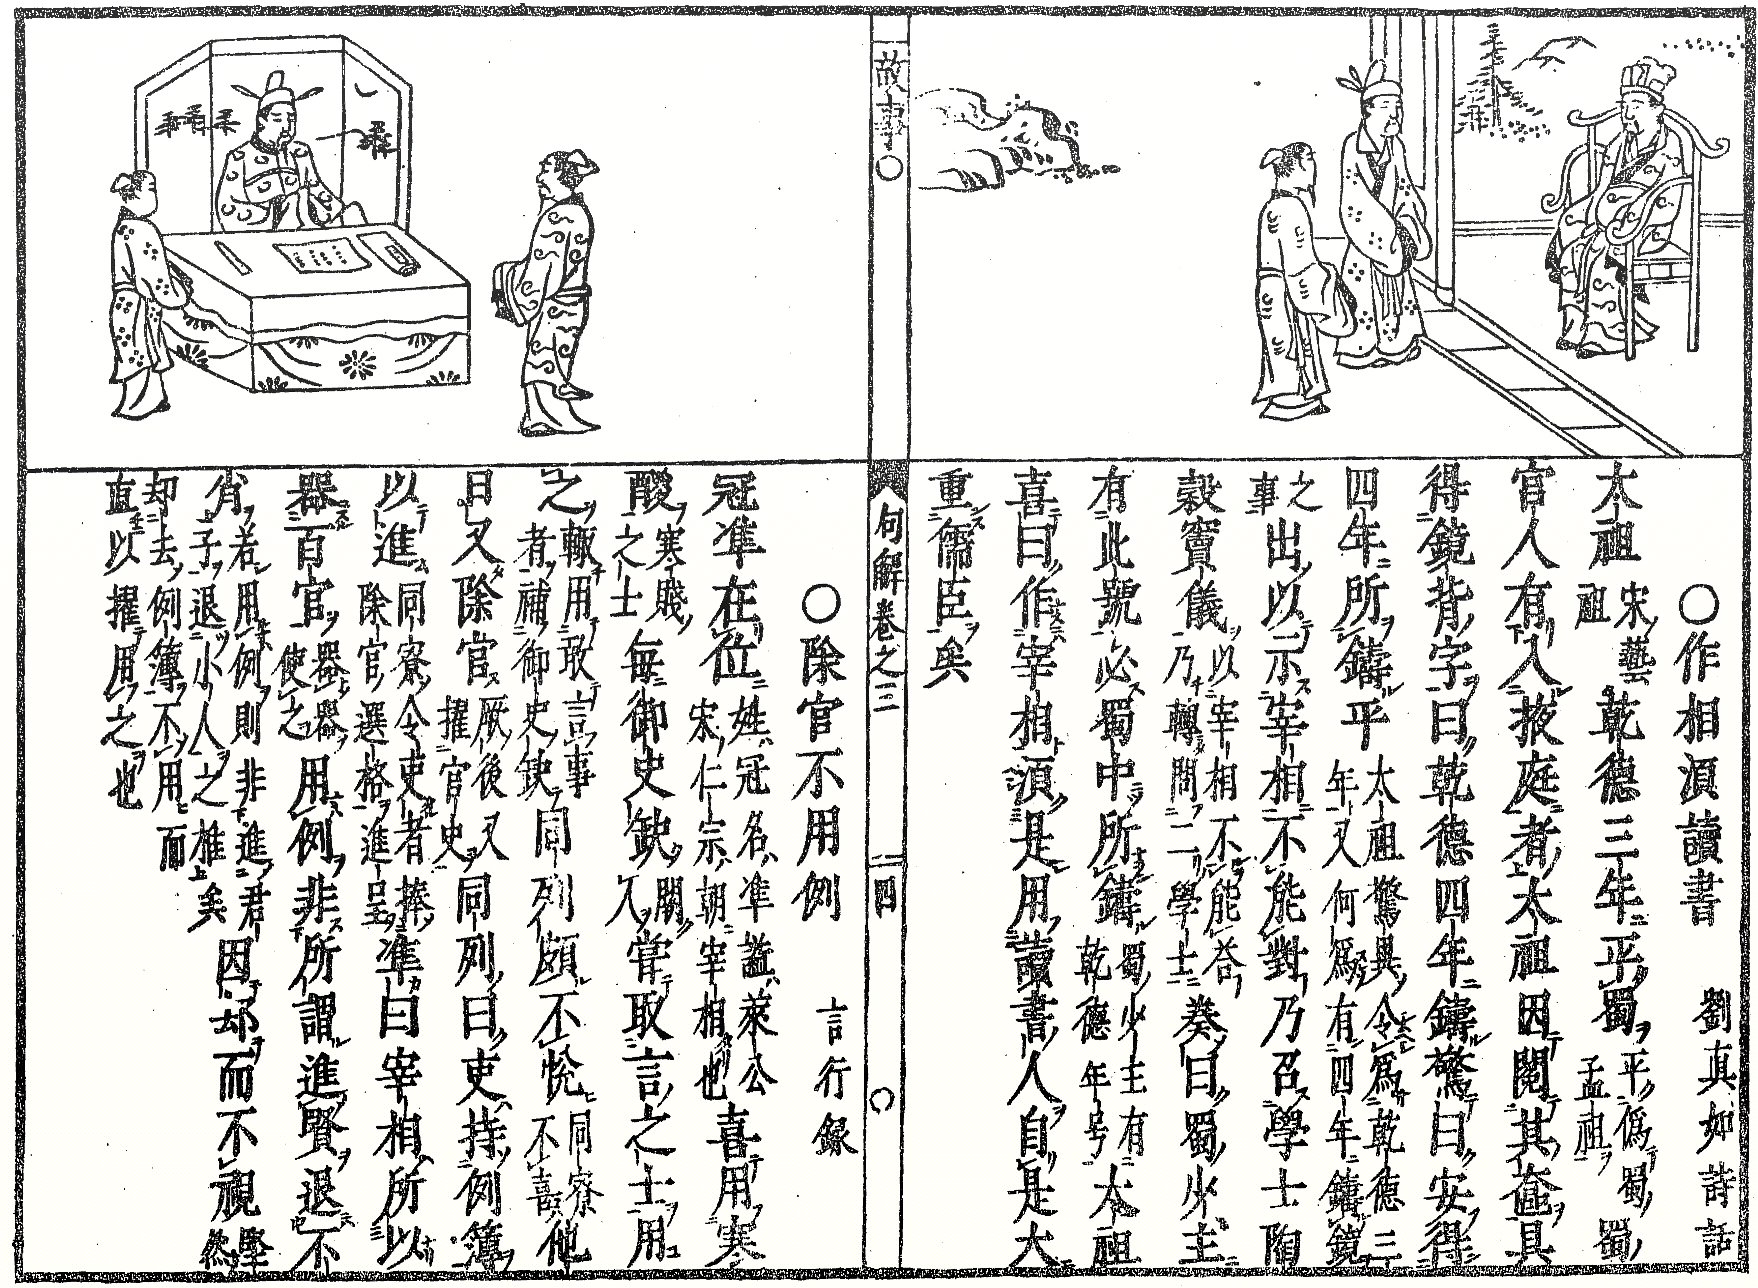 〇作相須讀書　劉真如詩話
太祖宋藝祖乾德三年平蜀平偽蜀孟祖蜀
官人有入掖庭者太祖因閱其奩具
得鏡背字曰乾德四年鑄驚曰安得
四年所鑄乎太祖驚異今爲乾德三年又何爲有四年鑄鏡
之事出以示宰相不能對乃召學士陶
穀竇儀以宰相不能荅乃轉問二學士葵曰蜀少主
有此號必蜀中所鑄蜀少主有乾德年号太祖
喜曰作宰相須是用讀書人自是大
重儒臣矣
故事〇
句解卷之三
三四
〇除官不用例　言行録
冠準在位姓冠名準謚萊公宋仁宗朝宰相也喜用寒
畯寒賤之士毎御史缺闕人嘗取言之士用
之輙用敢言事者補御史缺同列頗不悅同寮不喜他
日又除官厥後又擢官史同列曰吏持例簿
以進同寮令吏者捧除官選格進呈準曰宰相所以
器百官器器使之用例非所謂進賢退不
肖若用例則非進君子退小人之惟矣因却而不視然
却去例簿不用而直以擢用之也